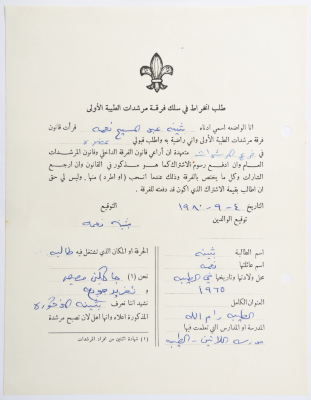 طلب انخراط في سلك فرقة مرشدات الطيبة الأولى
انا الواضعه اسمي ادناه بثينه عبد المسيح نعمه قرأت قانون
فرقة مرشدات الطيبة الأولى واني راضية به واطلب قبولي عضوه
في متعهدة ان أراعي قانون الفرقة الداخلي وقانون المرشدات
العام وان ادفع رسوم الاشتراك كما هو مذكور في القانون وان ارجع
الشارات وكل ما يختص بالفرقة وذلك عندما انسحب (او اطرد) منها. وليس لي حق
ان اطالب بقيمة الاشتراك الذي اكون قد دفعته للفرقة.
التاريخ ٤-٩-١٩٨٠ التوقيع
توقيع الوالدين
بثينه نعمه
اسم الطالبة بثينه
اسم عائلتها نعمه
محل ولادتها وتاريخها الطيبه
١٩٦٥
العنوان الكامل
الطيبه رام الله
المدرسة او المدارس التي تعلمت فيها
مدرسة اللاتين - الطيبه
الحرفة او المكان الذي تشتغل فيه طالبه
نحن (١) جاكلين
و
نشهد اننا نعرف بثينه المذكوره
المذكورة اعلاه وانها أهل لان تصبح مرشدة
(١) شهادة اثنين من افراد المرشدات